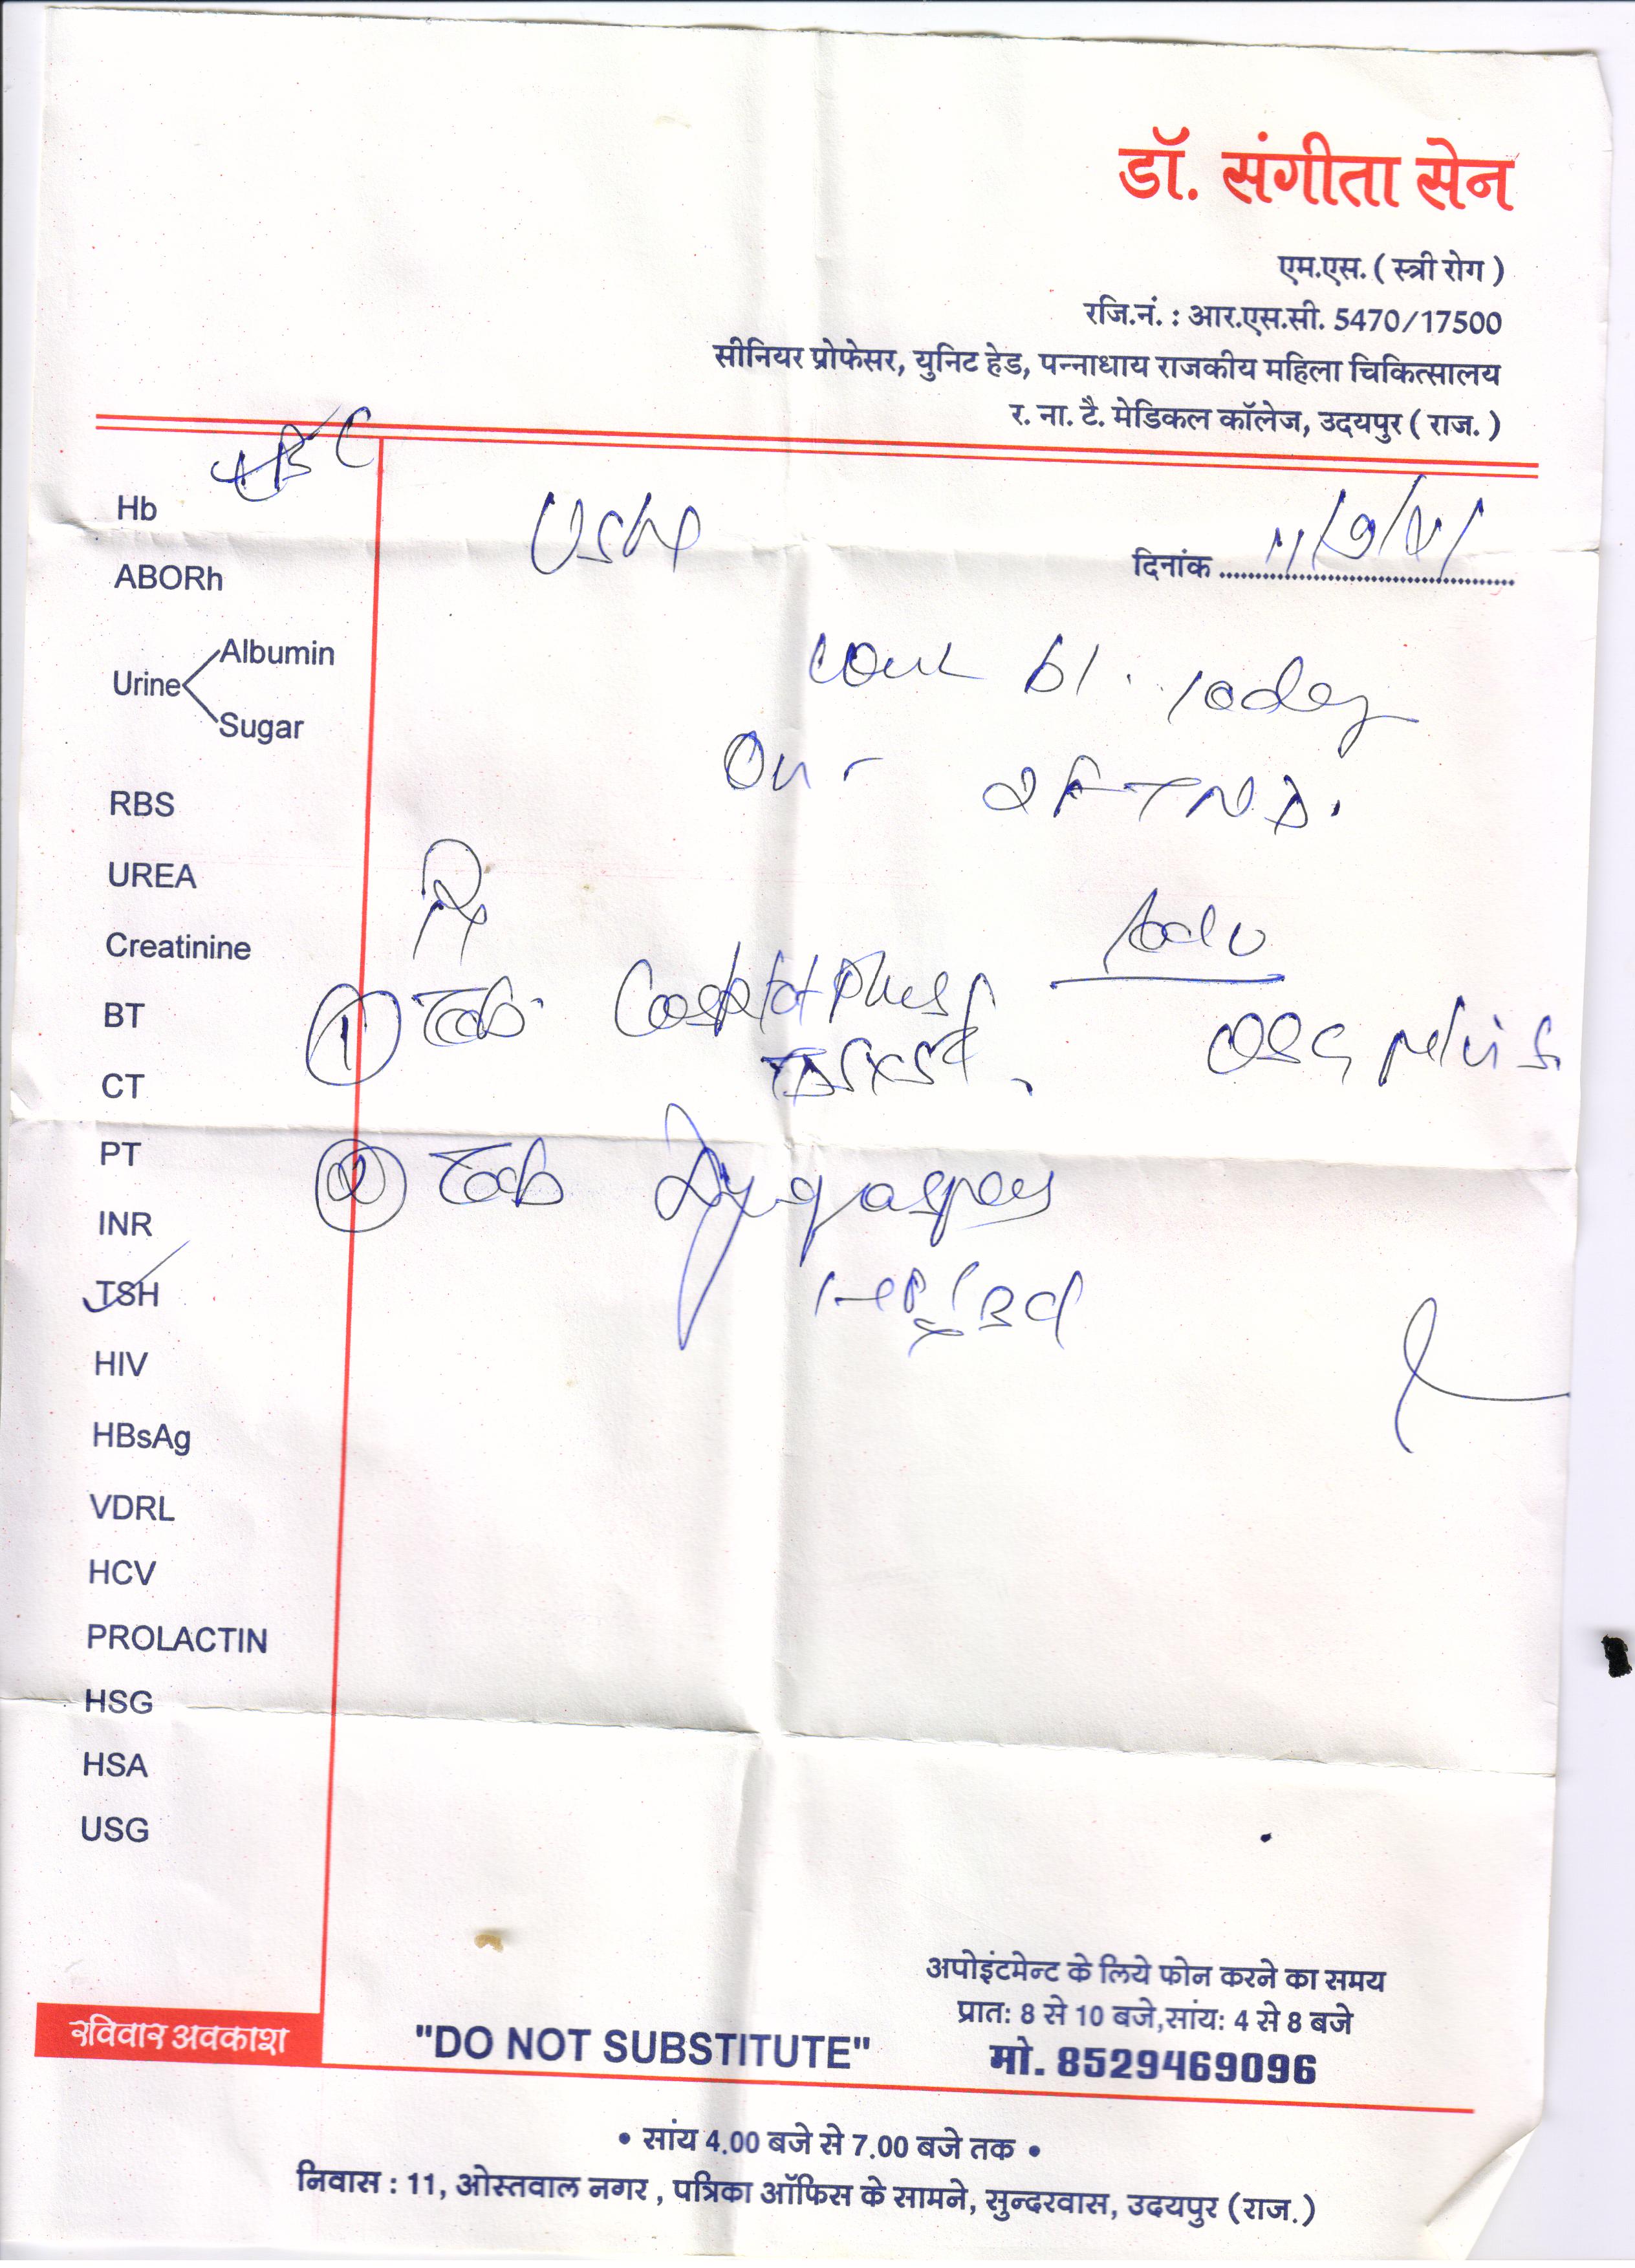 डॉ. संगीता सेन
एम.एस. ( स्त्री रोग )
रजि.नं. : आर.एस.सी. 5470/17500
सीनियर प्रोफेसर, युनिट हेड, पन्नाधाय राजकीय महिला चिकित्सालय
र. ना. टै. मेडिकल कॉलेज, उदयपुर ( राज. )
दिनांक
Hb
ABORh
Urine
Albumin
Sugar
RBS
UREA
Creatinine
BT
CT
PT
INR
TSH
HIV
HBsAg
VDRL
HCV
PROLACTIN
HSG
HSA
USG
bl. today
2FTND.
Rx
Adv
① Tab
USG pelvis
② Tab
रविवार अवकाश
"DO NOT SUBSTITUTE"
अपोइंटमेन्ट के लिये फोन करने का समय
प्रात: 8 से 10 बजे,सांय: 4 से 8 बजे
मो. 8529469096
• सांय 4.00 बजे से 7.00 बजे तक •
निवास : 11, ओस्तवाल नगर , पत्रिका ऑफिस के सामने, सुन्दरवास, उदयपुर (राज.)